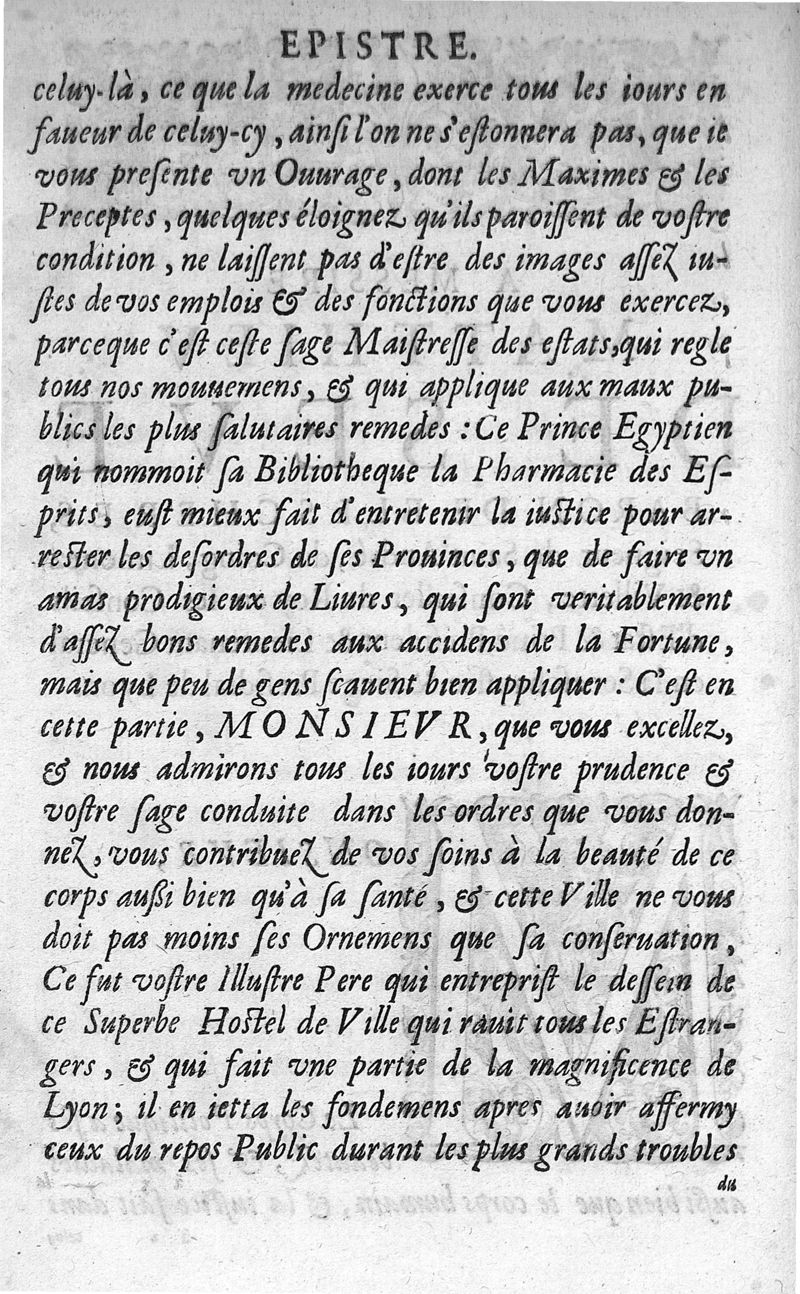 EPISTRE.
celuy-là, ce que la medecine exerce tous les iours en
faueur de celuy-cy, ainſi l'on ne s'eſtonnera pas, que ie
vous preſente vn Ouurage, dont les Maximes & les
Preceptes, quelques éloignez qu'ils paroiſſent de voſtre
condition, ne laiſſent pas d'eſtre des images aſſez iu-
ſtes de vos emplois & des fonctions que vous exercez,
parceque c'eſt ceſte ſage Maiſtreſſe des eſtats, qui regle
tous nos mouuemens, & qui applique aux maux pu-
blics les plus ſalutaires remedes : Ce Prince Egyptien
qui nommoit ſa Bibliotheque la Pharmacie des Eſ-
prits, euſt mieux fait d'entretenir la iuſtice pour ar-
reſter les deſordres de ſes Prouinces, que de faire vn
amas prodigieux de Liures, qui ſont veritablement
d'aſſez bons remedes aux accidens de la Fortune,
mais que peu de gens ſcauent bien appliquer : C'eſt en
cette partie, MONSIEVR, que vous excellez,
& nous admirons tous les iours voſtre prudence &
voſtre ſage conduite dans les ordres que vous don-
nez, vous contribuez de vos ſoins à la beauté de ce
corps außi bien qu'à ſa ſanté, & cette Ville ne vous
doit pas moins ſes Ornemens que ſa conſeruation,
Ce fut voſtre Illuſtre Pere qui entrepriſt le deſſein de
ce Superbe Hoſtel de Ville qui rauit tous les Eſtran-
gers, & qui fait vne partie de la magnificence de
Lyon; il en ietta les fondemens apres auoir affermy
ceux du repos Public durant les plus grands troubles
du